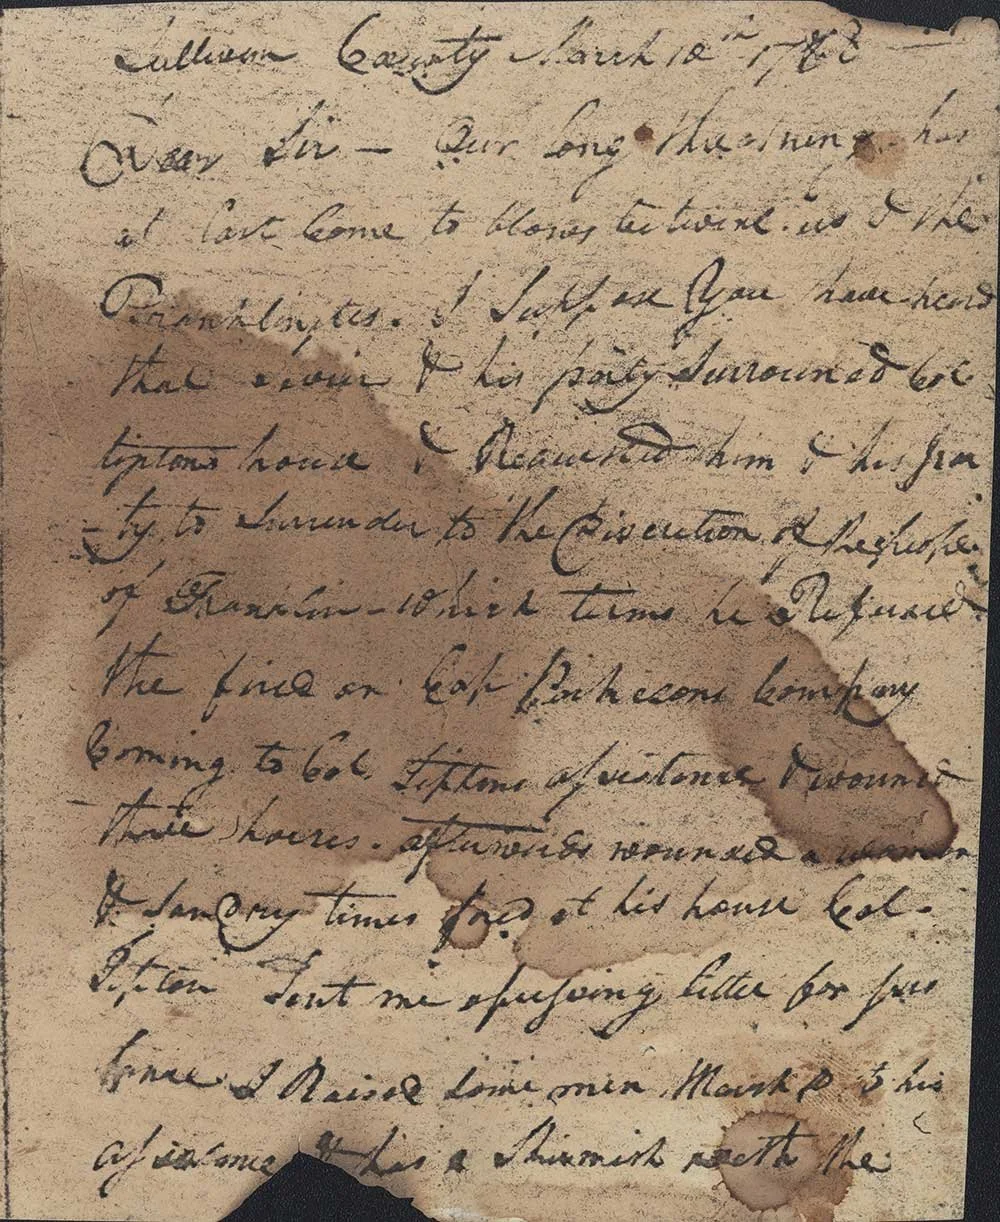 Sullivan County March 10th 1788
Dear Sir - Our long threatning has
at last Come to blows betwixt us & the
Franklinytes. I Suppose You have heard
that sevier & his party Surrouned Col
tiptons house & Requested him & his par
-ty to Surrender to the Discretion of the people
of Franklin - which terms he Refused
the fired on Cap Company
Coming to Col. Tiptons assistance & wound
three horses. afterwards wounded a woman
& Sandry times fired at his house Col.
Tipton Sent me a pressing letter for
I Raised Some men Marchd to his
assistance & had a Skirmish with the